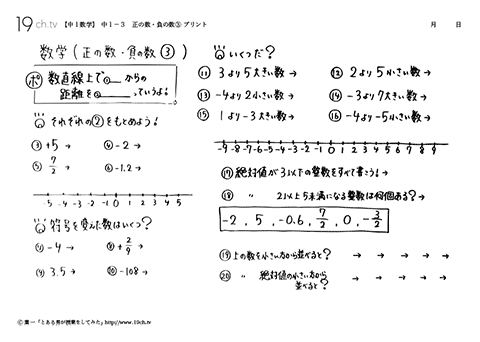 19ch.tv 【中1数学】 中1－3 正の数・負の数③ プリント 月 日
数学(正の数・負の数③)
ポ 数直線上で①＿＿からの
距離を②＿＿＿っていうよ!
それぞれの②をもとめよう!
③ +5 → ④ -2 →
⑤ 7/2 → ⑥ -1.2 →
-5 -4 -3 -2 -1 0 1 2 3 4 5
符号を変えた数はいくつ?
⑦ -4 → ⑧ +2/9 →
⑨ 3.5 → ⑩ -108 →
いくつだ?
⑪ 3より5大きい数 → ⑫ 2より5小さい数 →
⑬ -4より2小さい数 → ⑭ -3より7大きい数 →
⑮ 1より-3大きい数 → ⑯ -4より-5小さい数 →
-9 -8 -7 -6 -5 -4 -3 -2 -1 0 1 2 3 4 5 6 7 8 9
⑰ 絶対値が3以下の整数をすべて書こう!
⑱ 〃 2以上5未満になる整数は何個ある? →
-2 , 5 , -0.6 , 7/2 , 0 , -3/2
⑲ 上の数を小さい方から並べると? → → → → →
⑳ 〃 絶対値の小さい方から
並べると? → → → → →
© 葉一「とある男が授業をしてみた」http://www.19ch.tv